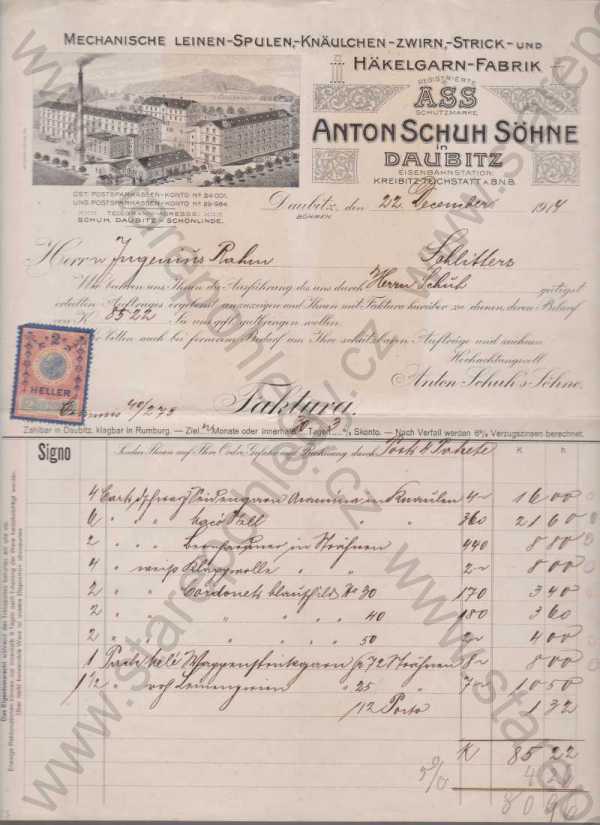 MECHANISCHE LEINEN-SPULEN,-KNÄULCHEN-ZWIRN,-STRICK-UND
HÄKELGARN-FABRIK
REGISTRIERTE
ASS
SCHUTZMARKE
ANTON SCHUH SÖHNE
in
DAUBITZ
EISENBAHNSTATION:
KREIBITZ-TEICHSTATT A.B.N.B.
ÖST. POSTSPARKASSEN-KONTO Nº 24.001.
UNG. POSTSPARKASSEN-KONTO Nº
TELEGRAMM-ADRESSE:
SCHUH, DAUBITZ-SCHÖNLINDE.
Daubitz, den 22. Dezember 1914
BÖHMEN
Herrn Rahm Schlitters
Wir beehren uns Ihnen die Ausführung des uns durch Herrn Schuh gütigst
erteilten Auftrages ergebenst anzuzeigen und Ihnen mit Faktura hierüber zu dienen, deren Belauf
von K 85 22 Sie uns gefl. gutbringen wollen.
Wir bitten auch bei fernerem Bedarf um Ihre schätzbaren Aufträge und zeichnen
Hochachtungsvoll
Anton Schuh's Söhne.
2
HELLER
40/278
Faktura.
Zahlbar in Daubitz, klagbar in Rumburg. — Ziel Monate oder innerhalb 30 Tagen 3 % Skonto. — Nach Verfall werden 6% Verzugszinsen berechnet.
Signo Sandten Ihnen auf Ihre Ordre, Gefahr und Rechnung durch Post 6 Pakete K h
4 Cart. schwarz Seidengarn in Knäulen 4 16 00
6 " " 360 21 60
2 " " in Strähnen 440 8 80
4 " weiß " " 2 8 00
2 " Cordonet No 30 170 3 40
2 " " " 40 180 3 60
2 " " " 50 2 4 00
1 Pack 72 Strähnen 8 8 00
1 1/2 " " 25 7 10 50
/12 Porto 1 32
K 85 22
5%
80 96
www.starepohledy.cz